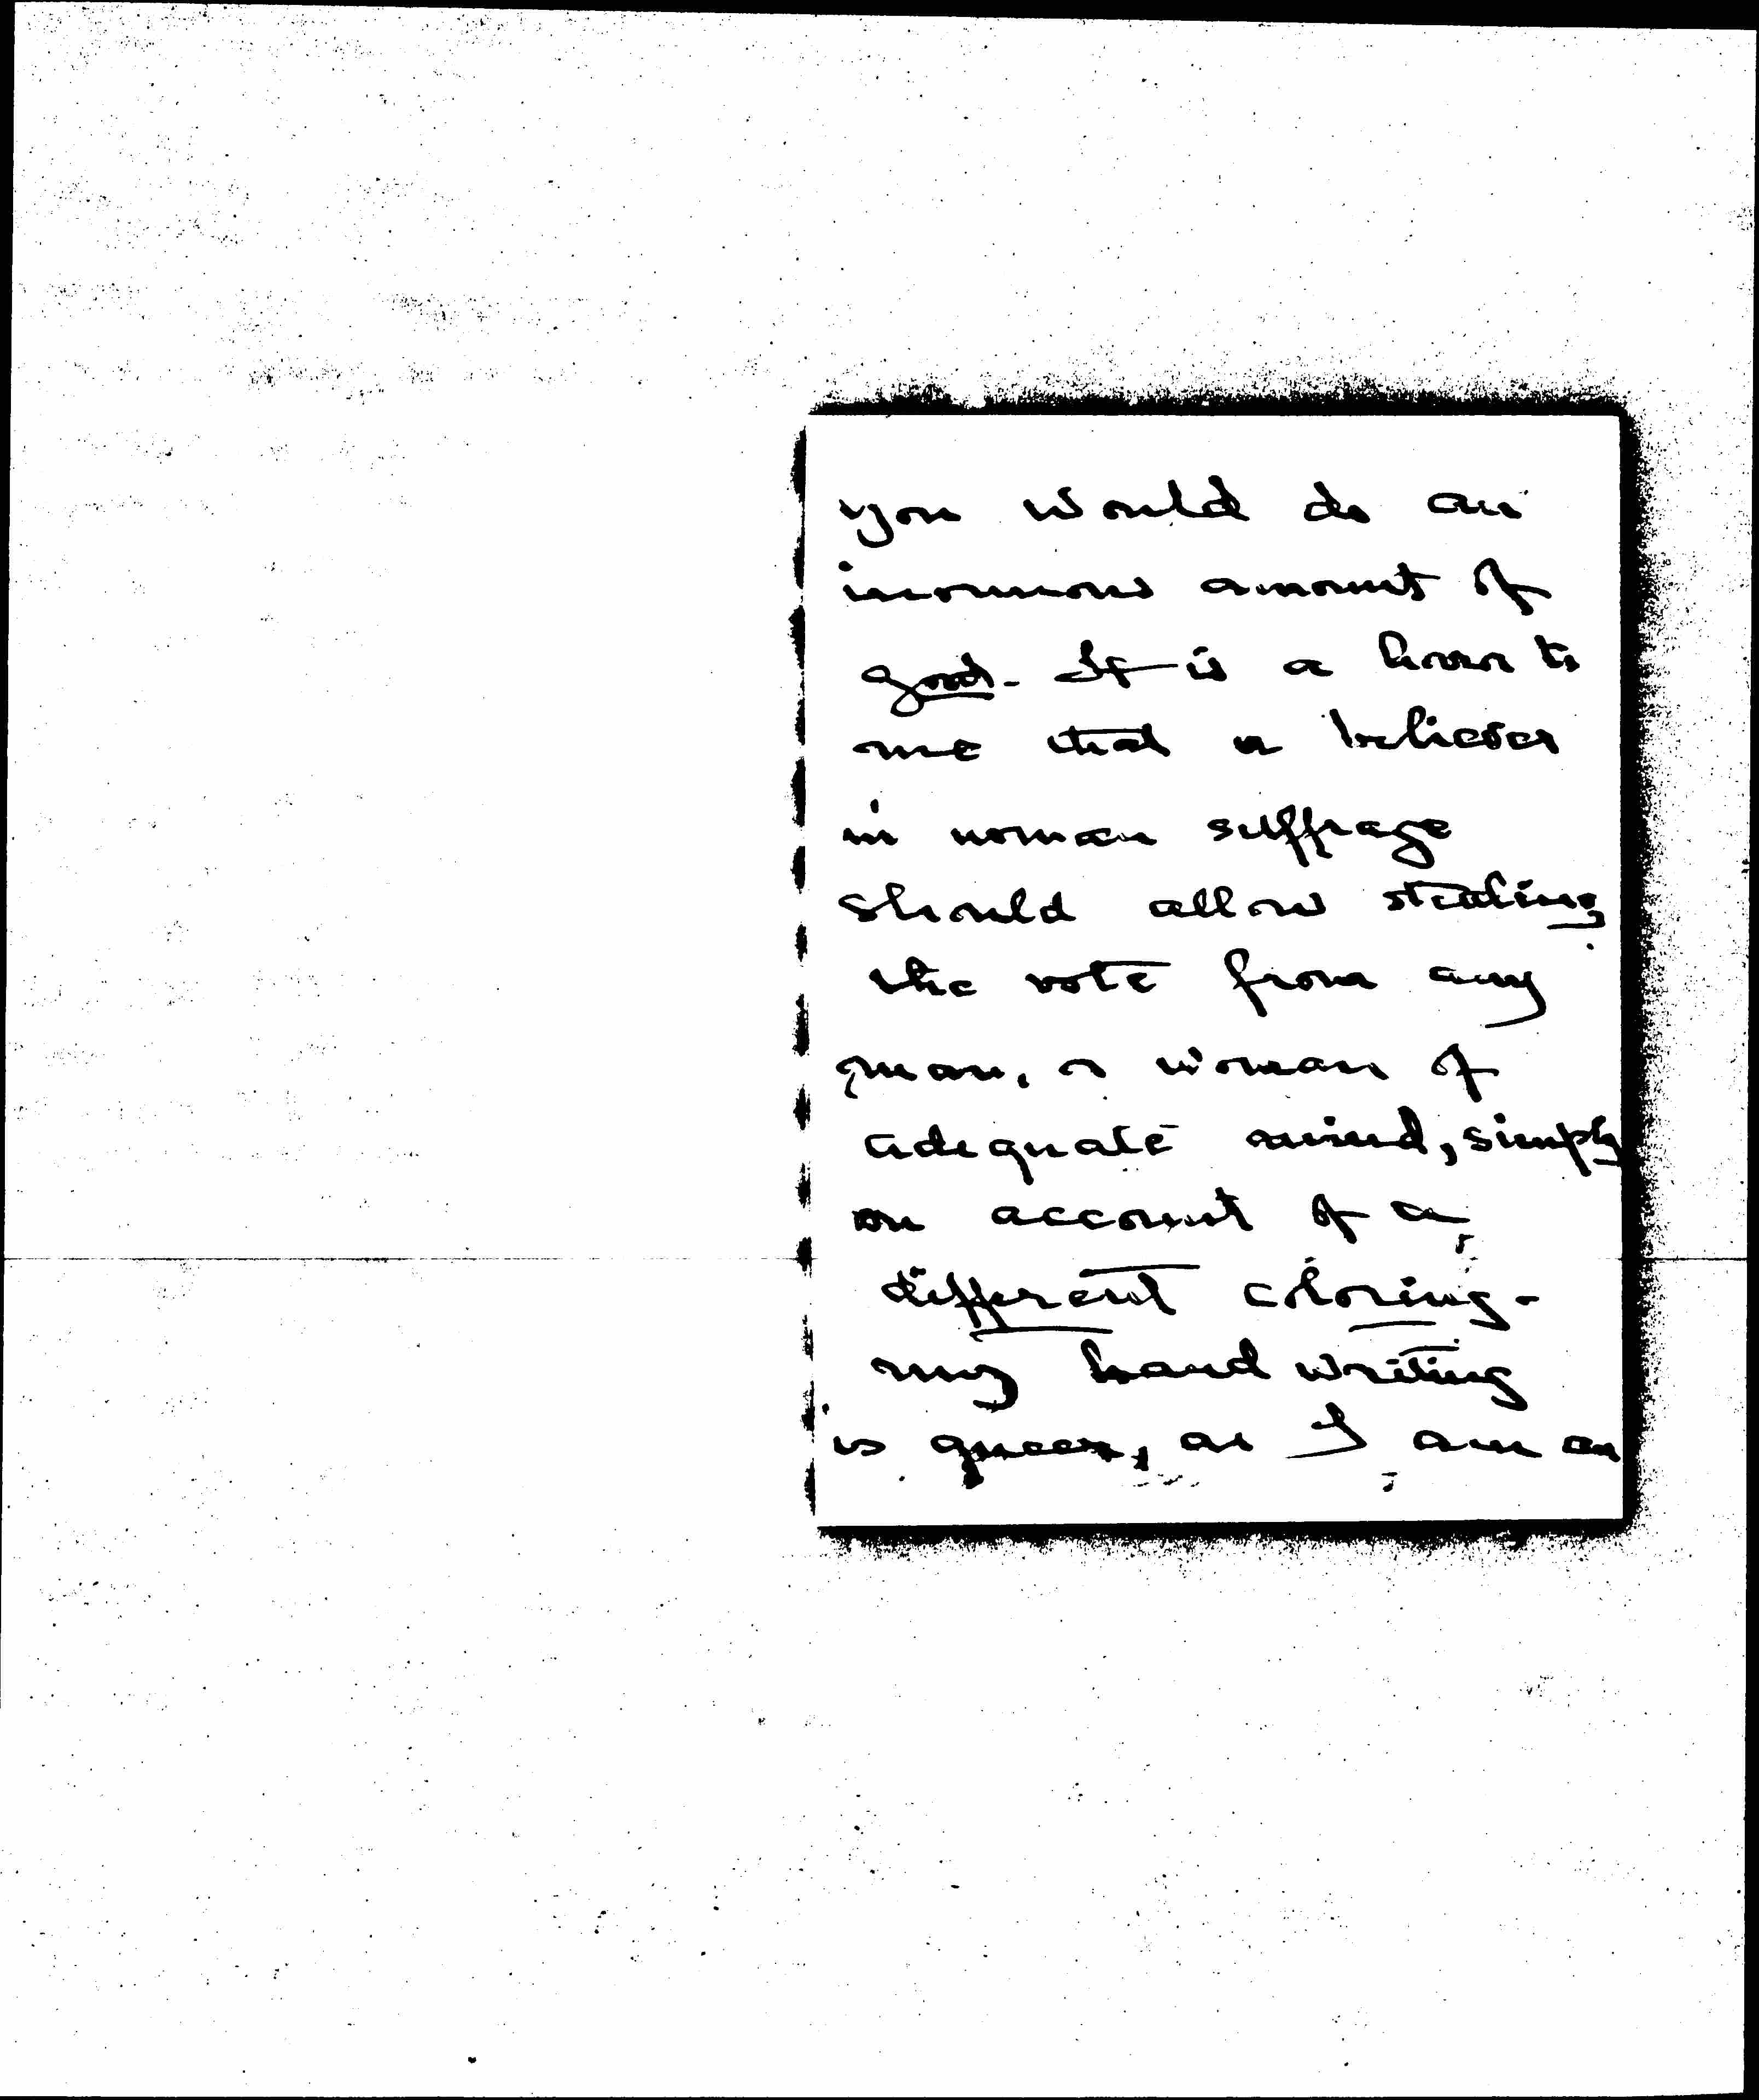 you would do an
inormous amount of
good. It is a horror to
me that a believer
in woman suffrage
should allow stealing
the vote from any
man, or woman of
adequate mind, simply
on account of a
different coloring-
my hand writing
is queer, as I am an